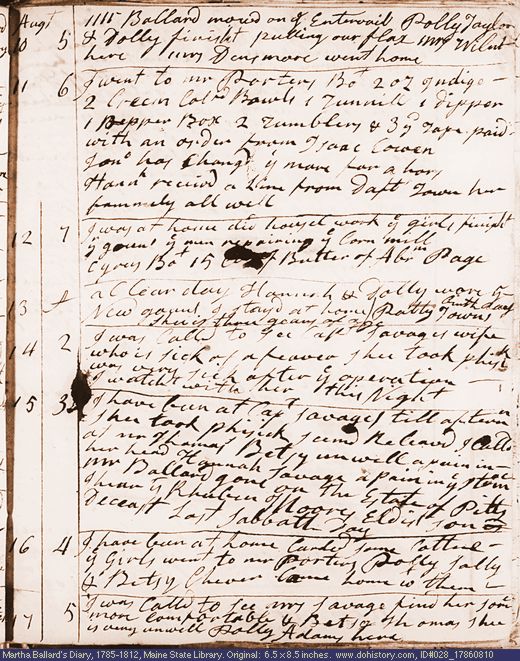 Augt
10 5 Mr Ballard movd on ye Entervail Polly Taylor
& Dolly finisht pulling our flax Mrs
here Mrs Densmore went home
11 6 I went to mr Porters Bot 2 oz Indigo
2 Cream Colrd Bowls 1 Tunnill 1 dipper
1 Pepper Box 2 Tumblers & 3 yd Tape paid
with an order from Isaac Cowen
Jonn has Changd ye mare for a hors
Hanh receivd a Line from Daft Town her
fammely all well
12 7 I was at home did houseld work ye girls finisht
ye gouns ye men repairing ye Corn mill
Cyrus Bot 15 of Butter of Abrm Page
13 A a Clear day Hannah & Dolly wore ye
New gouns I stayd at home Patty Towns Birth day
shee is three years of age
14 2 I was Calld to see Capt Savages wife
who is sick of a feaver shee took phisik
was very sick after ye operation
I watcht with her this Night
15 3 I have been at Capt Savages till aftern
shee took phisick seemd Releavd I Calld
at mr Thomas' Betsy unwell a pain in
her head Hannah Savage a pain in ye stom
mr Ballard gone on the State of
I hear Rheuben Moore Eldest son
Deceast Last Sabbath Day
16 4 I have been at home Cardd some Cotten
ye Girls went to mr Porters Polly Sally
& Betsy Chever Came home with them
17 5 I was Calld to see mrs Savage find her some
more Comfortable & Betsy Thomas shee
is very unwell Polly Adams here
Martha Ballard's Diary, 1785-1812, Maine State Library. Original: 6.5 x 8.5 inches. www.dohistory.com, ID#028_17860810